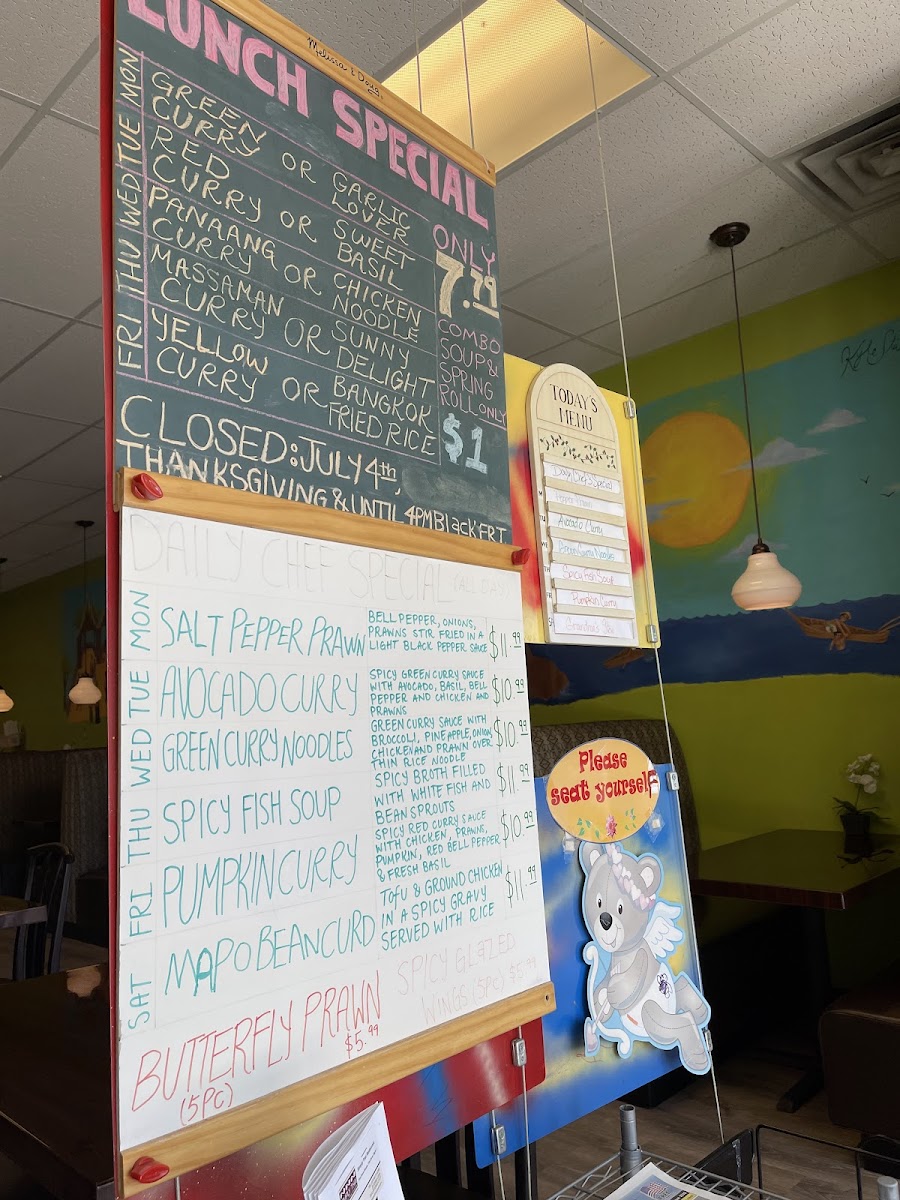 LUNCH SPECIAL
Melissa & Doug.
MON
GREEN CURRY OR GARLIC LOVER
TUE
RED CURRY OR SWEET BASIL
WED
PANAANG CURRY OR CHICKEN NOODLE
THU
MASSAMAN CURRY OR SUNNY DELIGHT
FRI
YELLOW CURRY OR BANGKOK FRIED RICE
ONLY
7.79
COMBO
SOUP &
SPRING
ROLL ONLY
$1
CLOSED: JULY 4th,
THANKSGIVING & UNTIL 4PM Black FRI
DAILY CHEF SPECIAL (ALL DAY)
MON
SALT PEPPER PRAWN
BELL PEPPER, ONIONS,
PRAWNS STIR FRIED IN A
LIGHT BLACK PEPPER SAUCE
$11.99
TUE
AVOCADO CURRY
SPICY GREEN CURRY SAUCE
WITH AVOCADO, BASIL, BELL
PEPPER AND CHICKEN AND
PRAWNS
$10.99
WED
GREEN CURRY NOODLES
GREEN CURRY SAUCE WITH
BROCCOLI, PINEAPPLE, ONION
CHICKEN AND PRAWN OVER
THIN RICE NOODLE
$10.99
THU
SPICY FISH SOUP
SPICY BROTH FILLED
WITH WHITE FISH AND
BEAN SPROUTS
$11.99
FRI
PUMPKIN CURRY
SPICY RED CURRY SAUCE
WITH CHICKEN, PRAWNS,
PUMPKIN, RED BELL PEPPER
& FRESH BASIL
$10.99
SAT
MAPO BEAN CURD
TOFU & GROUND CHICKEN
IN A SPICY GRAVY
SERVED WITH RICE
$11.99
BUTTERFLY PRAWN
(5PC)
$5.99
SPICY GLAZED
WINGS (5PC) $5.99
TODAY'S
MENU
Daily Chef's Special
Avocado Curry
Green Curry Noodles
Spicy Fish Soup
Pumpkin Curry
Please
seat yourself